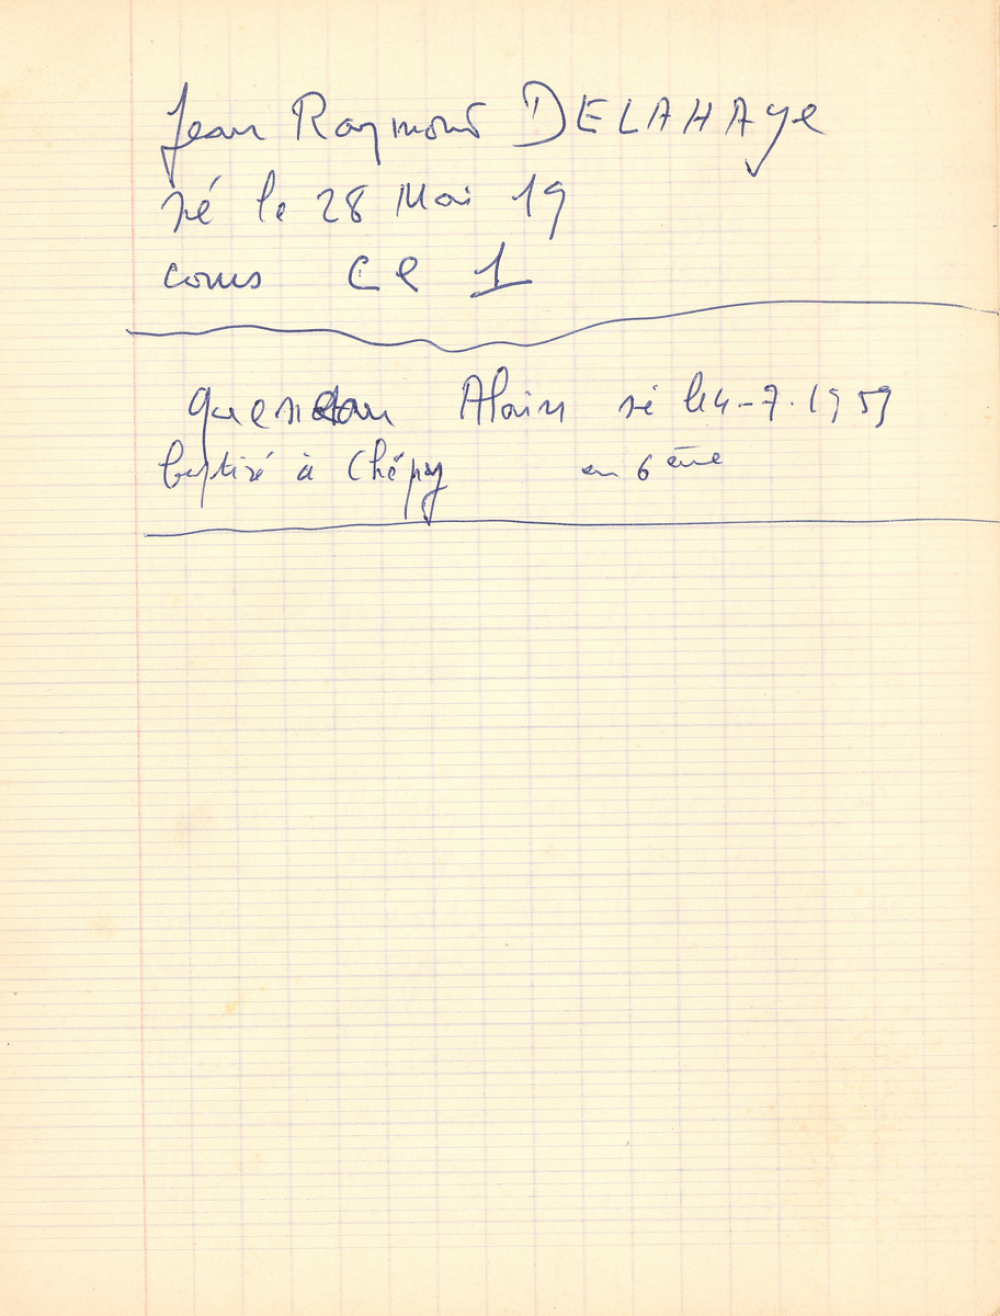 Jean Raymond DELAHAye
né le 28 Mai 19
cours Ce 1
Alain né le 4-7.1959
baptisé à Chépy en 6ème